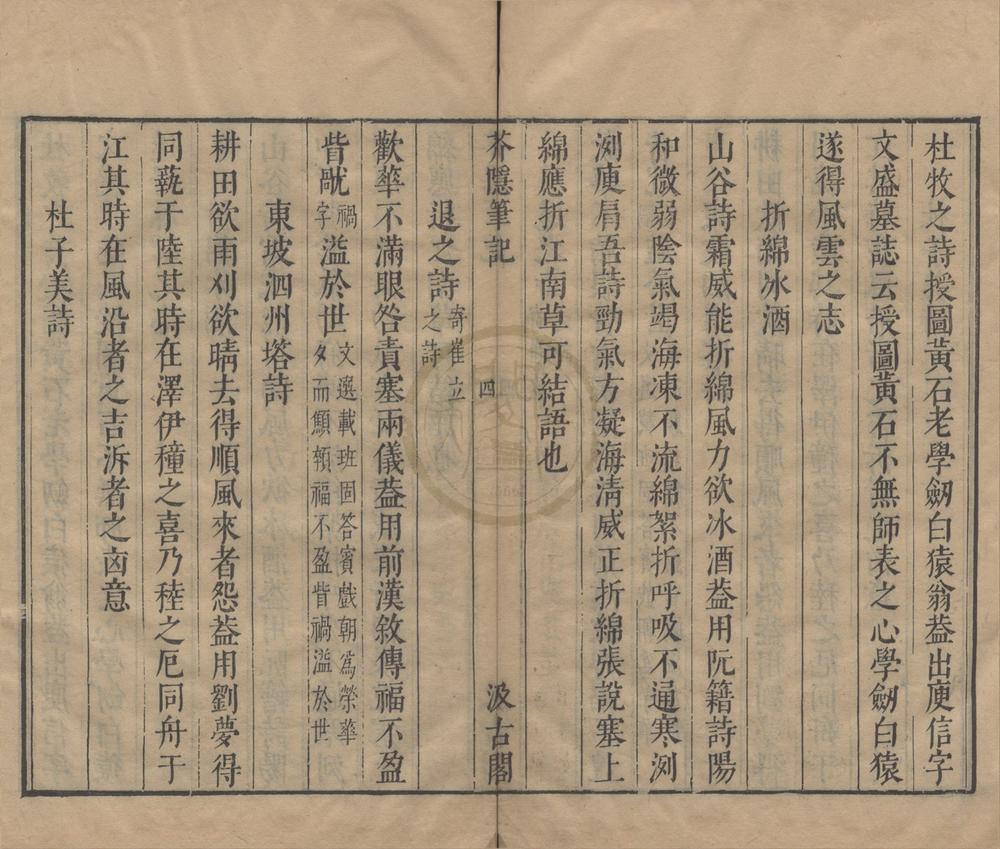 杜牧之詩授圖黃石老學劒白猿翁葢出庾信字
文盛墓誌云授圖黃石不無師表之心學劒白猿
遂得風雲之志
折綿冰酒
山谷詩霜威能折綿風力欲冰酒葢用阮籍詩陽
和微弱陰氣竭海凍不流綿絮折呼吸不通寒洌
洌庾肩吾詩勁氣方凝海淸威正折綿張說塞上
綿應折江南草可結語也
芥隱筆記 四 汲古閣
退之詩寄崔立之詩
歡華不滿眼咎責塞兩儀葢用前漢敘傳福不盈
眥㫼禍字溢於世文選載班固答賓戲朝爲榮華夕而顦顇福不盈眥禍溢於世
東坡泗州塔詩
耕田欲雨刈欲晴去得順風來者怨葢用劉夢得
同蓺于陸其時在澤伊穜之喜乃稑之厄同舟于
江其時在風沿者之吉泝者之凶意
杜子美詩